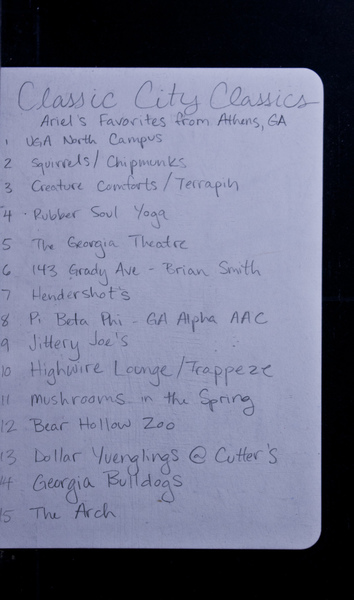 Classic City Classics
Ariel's Favorites from Athens, GA
1 UGA North Campus
2 Squirrels/Chipmunks
3 Creature Comforts/Terrapin
4 Rubber Soul Yoga
5 The Georgia Theatre
6 143 Grady Ave - Brian Smith
7 Hendershot's
8 Pi Beta Phi - GA Alpha AAC
9 Jittery Joe's
10 Highwire Lounge/Trappeze
11 mushrooms in the Spring
12 Bear Hollow Zoo
13 Dollar Yuenglings @ Cutter's
14 Georgia Bulldogs
15 The Arch